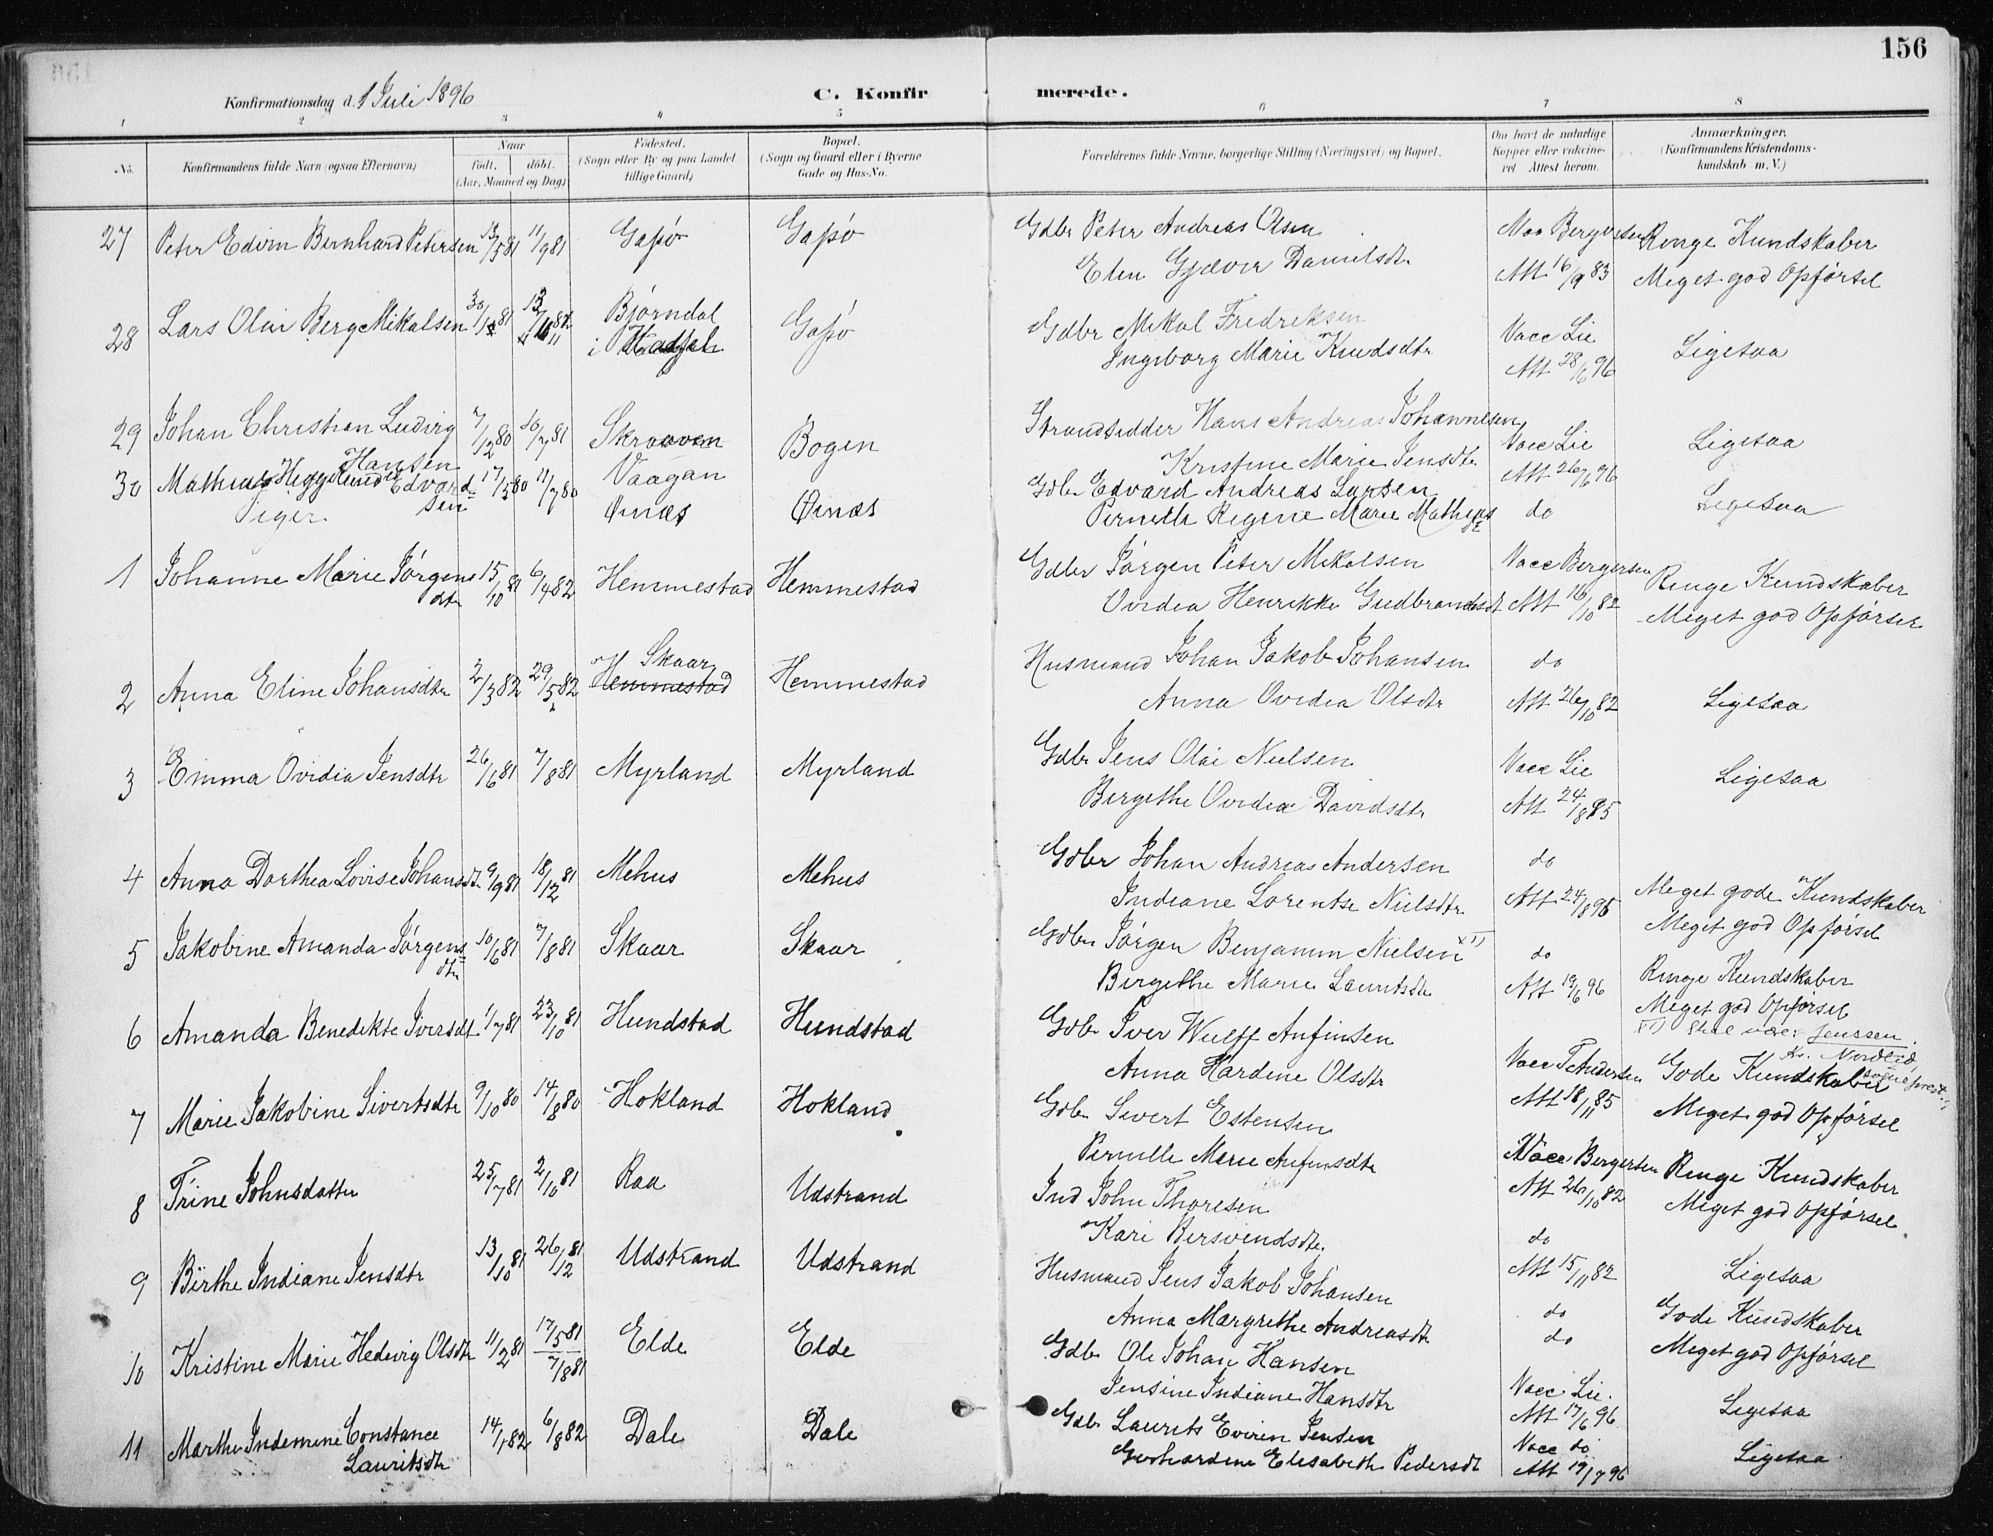 156
Konfirmationsdag d. 1 Juli 1896
C. Konfirmerede.
1 2 3 4 5 6 7 8
No. Konfirmandens fulde Navn (ogsaa Efternavn) Naar født. døbt. (Aar, Maaned og Dag) Fødested. (Sogn eller By og paa Landet tillige Gaard) Bopæl. (Sogn og Gaard eller i Byerne Gade og Hus-No. Forældrenes fulde Navne, borgerlige Stilling (Næringsvei) og Bopæl. Om havt de naturlige Kopper eller vaccineret Attest herom. Anmærkninger. (Konfirmandens Kristendomskundskab m. V.)
27 Peter Edvin Bernhard Petersen 13/5 81 11/9 81 Gapø Gapø Gdbr Peter Andreas Olsen Vacc Bergersen Ringe Kundskaber
Elen Gjæver Danielsdtr Att 16/9 83 Meget god Opførsel
28 Lars Olai Berg Mikalsen Bjørndal Gapø Gdbr Mikal Fredriksen Vacc Lie
i Hadsel Ingeborg Marie Knudsdtr Att 28/6 96 Ligesaa
29 Johan Christian Ludvig 7/12 80 10/7 81 Skraaven Bogen Strandsidder Hans Andreas Johannesen Vacc Lie Ligesaa
Hansen Vaagan Kristine Marie Jensdtr Att 26/6 96
30 Mathias Hegg Knud Edvardsen 17/5 80 11/7 80 Ørnæs Ørnæs Gdbr Edvard Andreas Larsen
Pernille Regine Marie Mathiasdt do Ligesaa
Piger
1 Johanne Marie Jørgensdtr 15/10 81 6/4 82 Hemmestad Hemmestad Gdbr Jørgen Peter Mikalsen Vacc Bergersen Ringe Kundskaber
Ovidia Henrikke Gudbrandsdt Att 16/10 82 Meget god Opførsel
2 Anna Eline Johansdtr 2/3 82 29/5 82 Skaar Hemmestad Hemmestad Husmand Johan Jakob Johansen do
Anna Ovidia Olsdtr Att 26/10 82 Ligesaa
3 Emma Ovidia Jensdtr 26/6 81 7/8 81 Myrland Myrland Gdbr Jens Olai Nielsen Vacc Lie Ligesaa
Bergithe Ovidia Davidsdtr Att 24/8 95
4 Anna Dorthea Lovise Johansdt 9/9 81 18/12 81 Mehus Mehus Gdbr Johan Andreas Andersen do Meget gode Kundskaber
Indiane Lorentse Nielsdtr Att 24/8 95 Meget god Opførsel
5 Jakobine Amanda Jørgensdtr 10/6 81 7/8 81 Skaar Skaar Gdbr Jørgen Benjamin Nielsen x1) do Ringe Kundskaber
Bergithe Marie Lauritsdtr Att 19/6 96 Meget god Opførsel
x1) Skal være Jenssen. Kr. Nordlid sogneprest
6 Amanda Benedikte Iversdt 1/7 81 23/10 81 Hundstad Hundstad Gdbr Iver Wulff Anfinsen Vacc T Andersen Gode Kundskaber
Anna Hardine Olsdtr Att 18/11 85 Meget god Opførsel
7 Marie Jakobine Sivertsdtr 9/10 80 14/8 80 Hokland Hokland Gdbr Sivert Estensen
Pernille Marie Anfinsdtr Vacc Bergersen Ringe Kundskaber
8 Trine Johnsdatter 25/7 81 2/10 81 Raa Udstrand Ind John Thoresen Att 26/10 82 Meget god Opførsel
Kari Bersvendsdtr do
9 Birthe Indiane Jensdtr 13/10 81 26/12 81 Udstrand Udstrand Husmand Jens Jakob Johansen Att 15/11 82 Ligesaa
Anna Margrethe Andreasdt do Gode Kundskaber
10 Kristine Marie Hedevig Olsdtr 11/2 81 17/5 81 7/8 81 Elde Elde Gdbr Ole Johan Hansen do Meget god Opførsel
Jensine Indiane Hansdtr Vacc Lie.
Att 17/6 96 Ligesaa
11 Marthe Indemine Constance 14/1 82 6/8 82 Dale Dale Gdbr Laurits Eviren Jensen Vacc do Ligesaa
Lauritsdtr Gerhardine Elisabeth Pedersdt Att 19/7 96